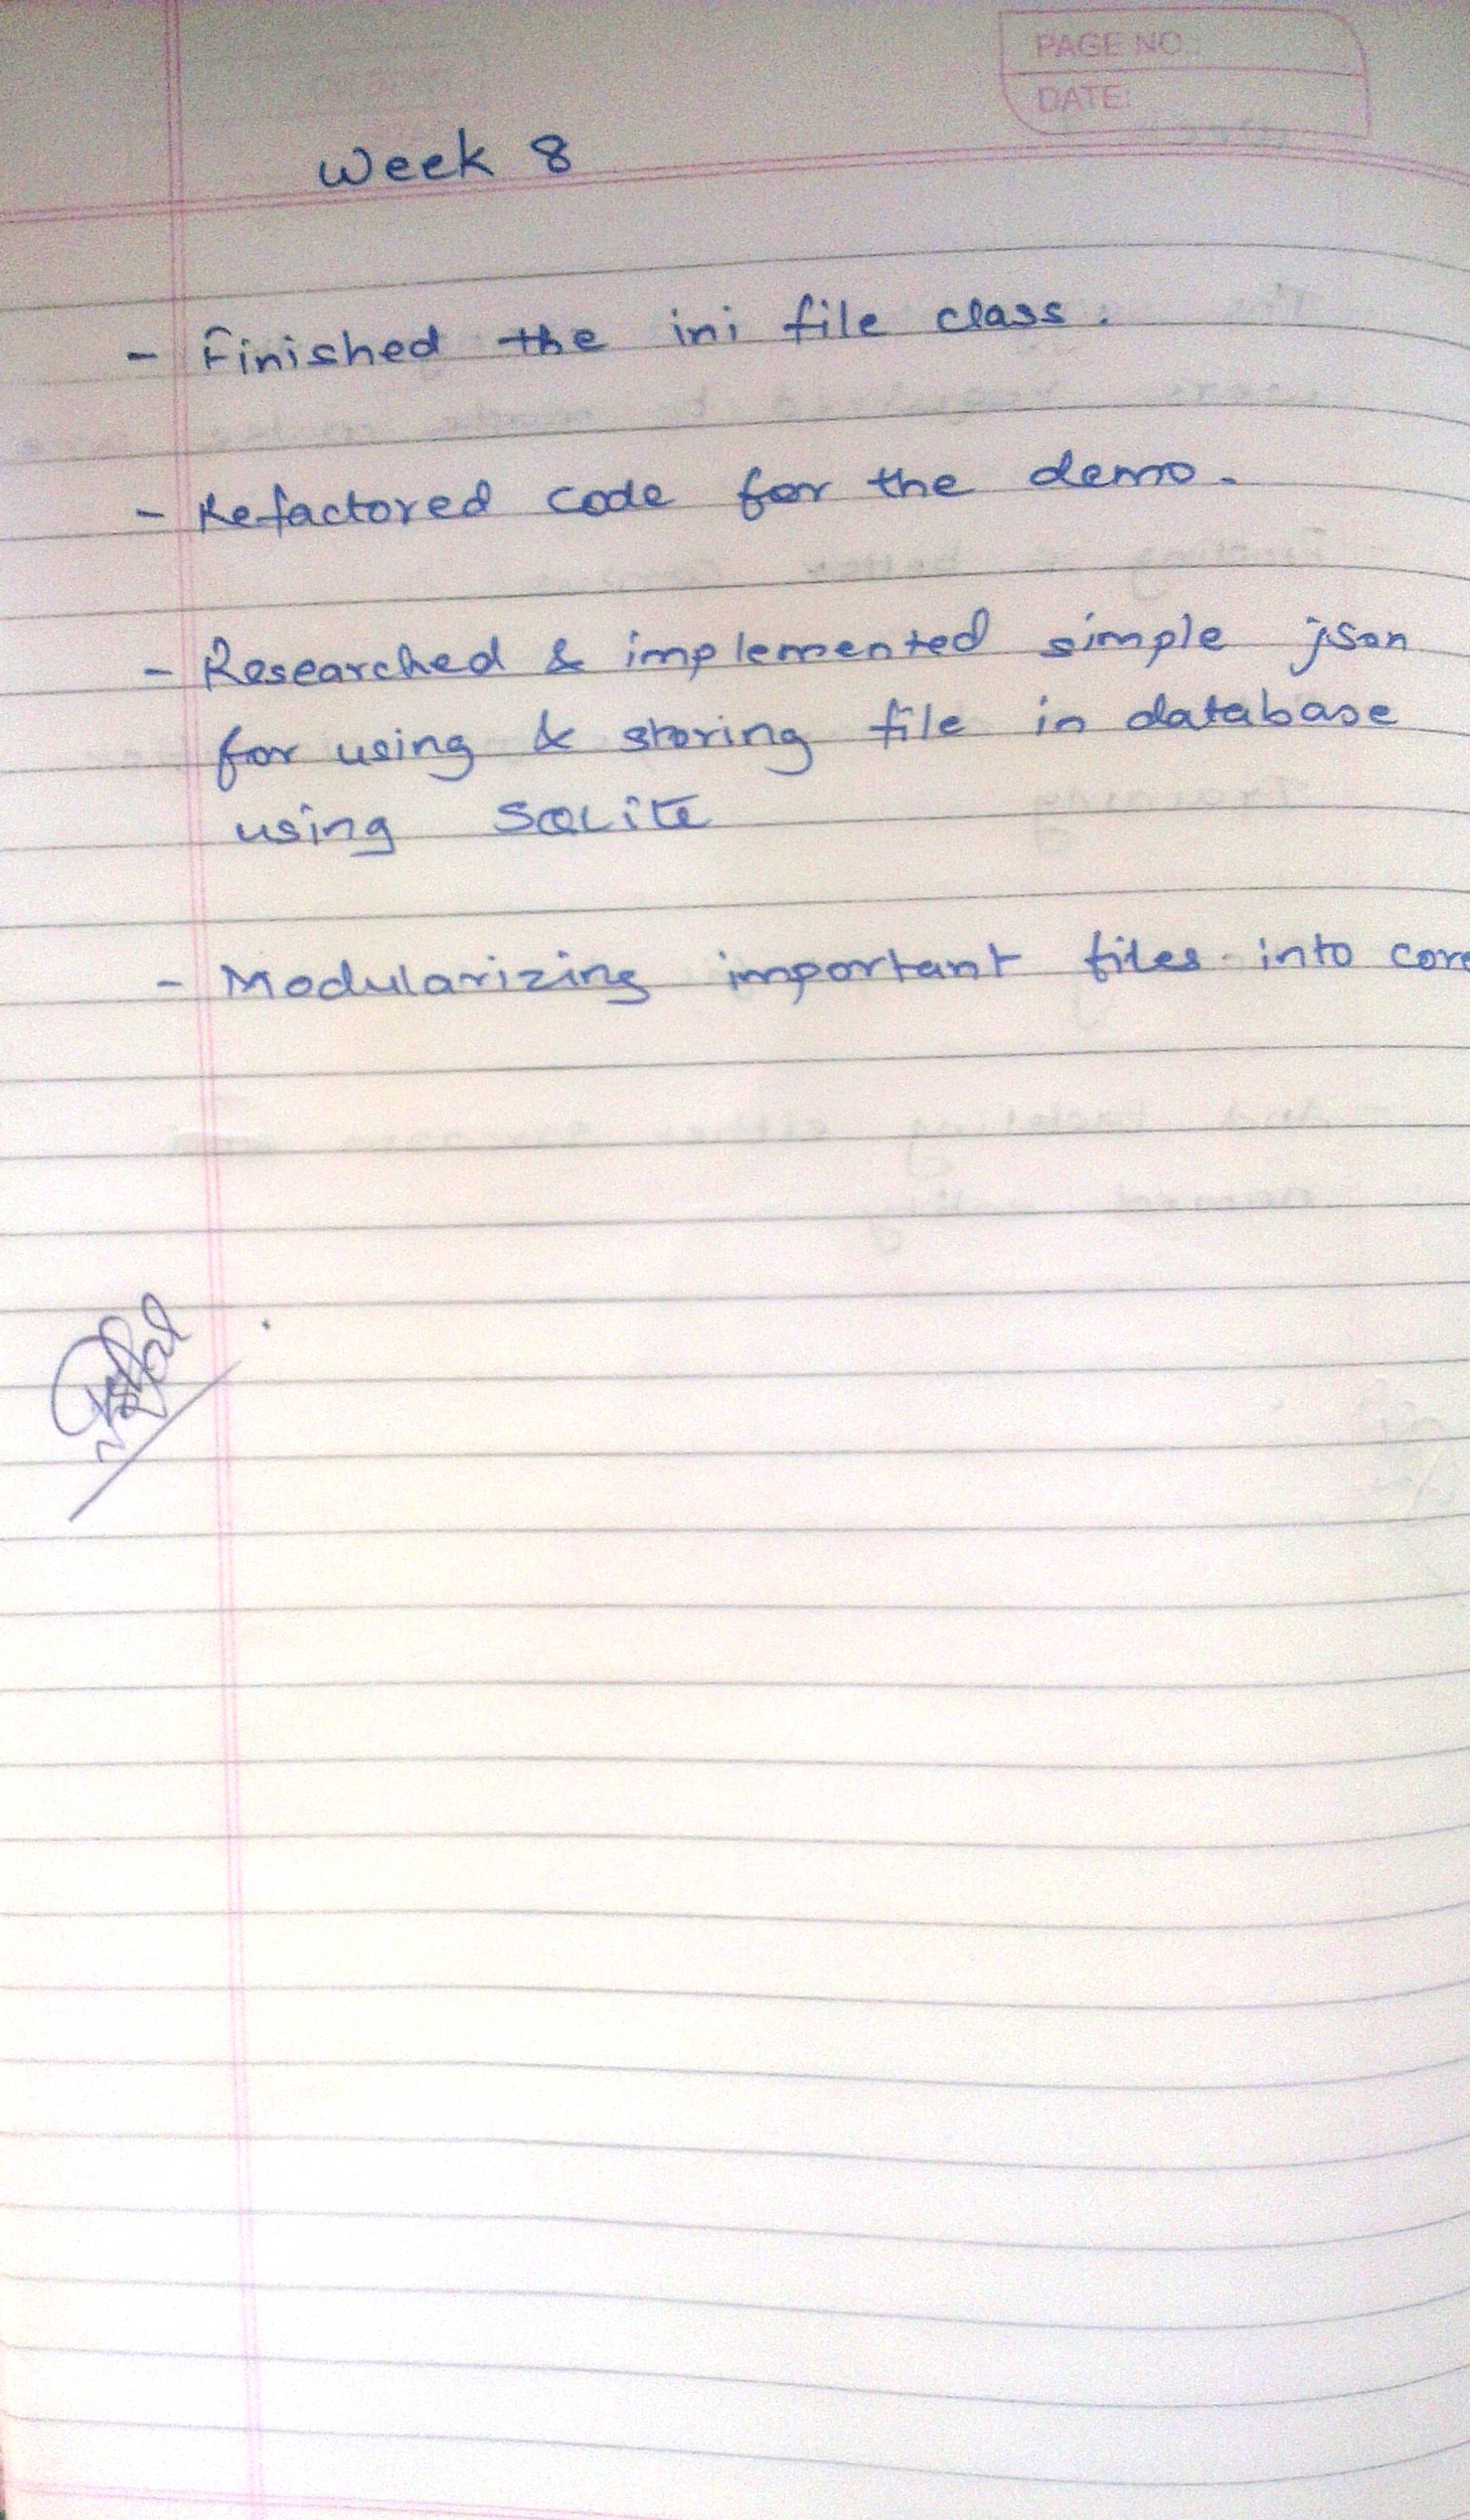 PAGE NO.:
DATE:
Week 8
- Finished the ini file class.
- Refactored code for the demo.
- Researched & implemented simple json
for using & storing file in database
using SQLite
- Modularizing important files into core